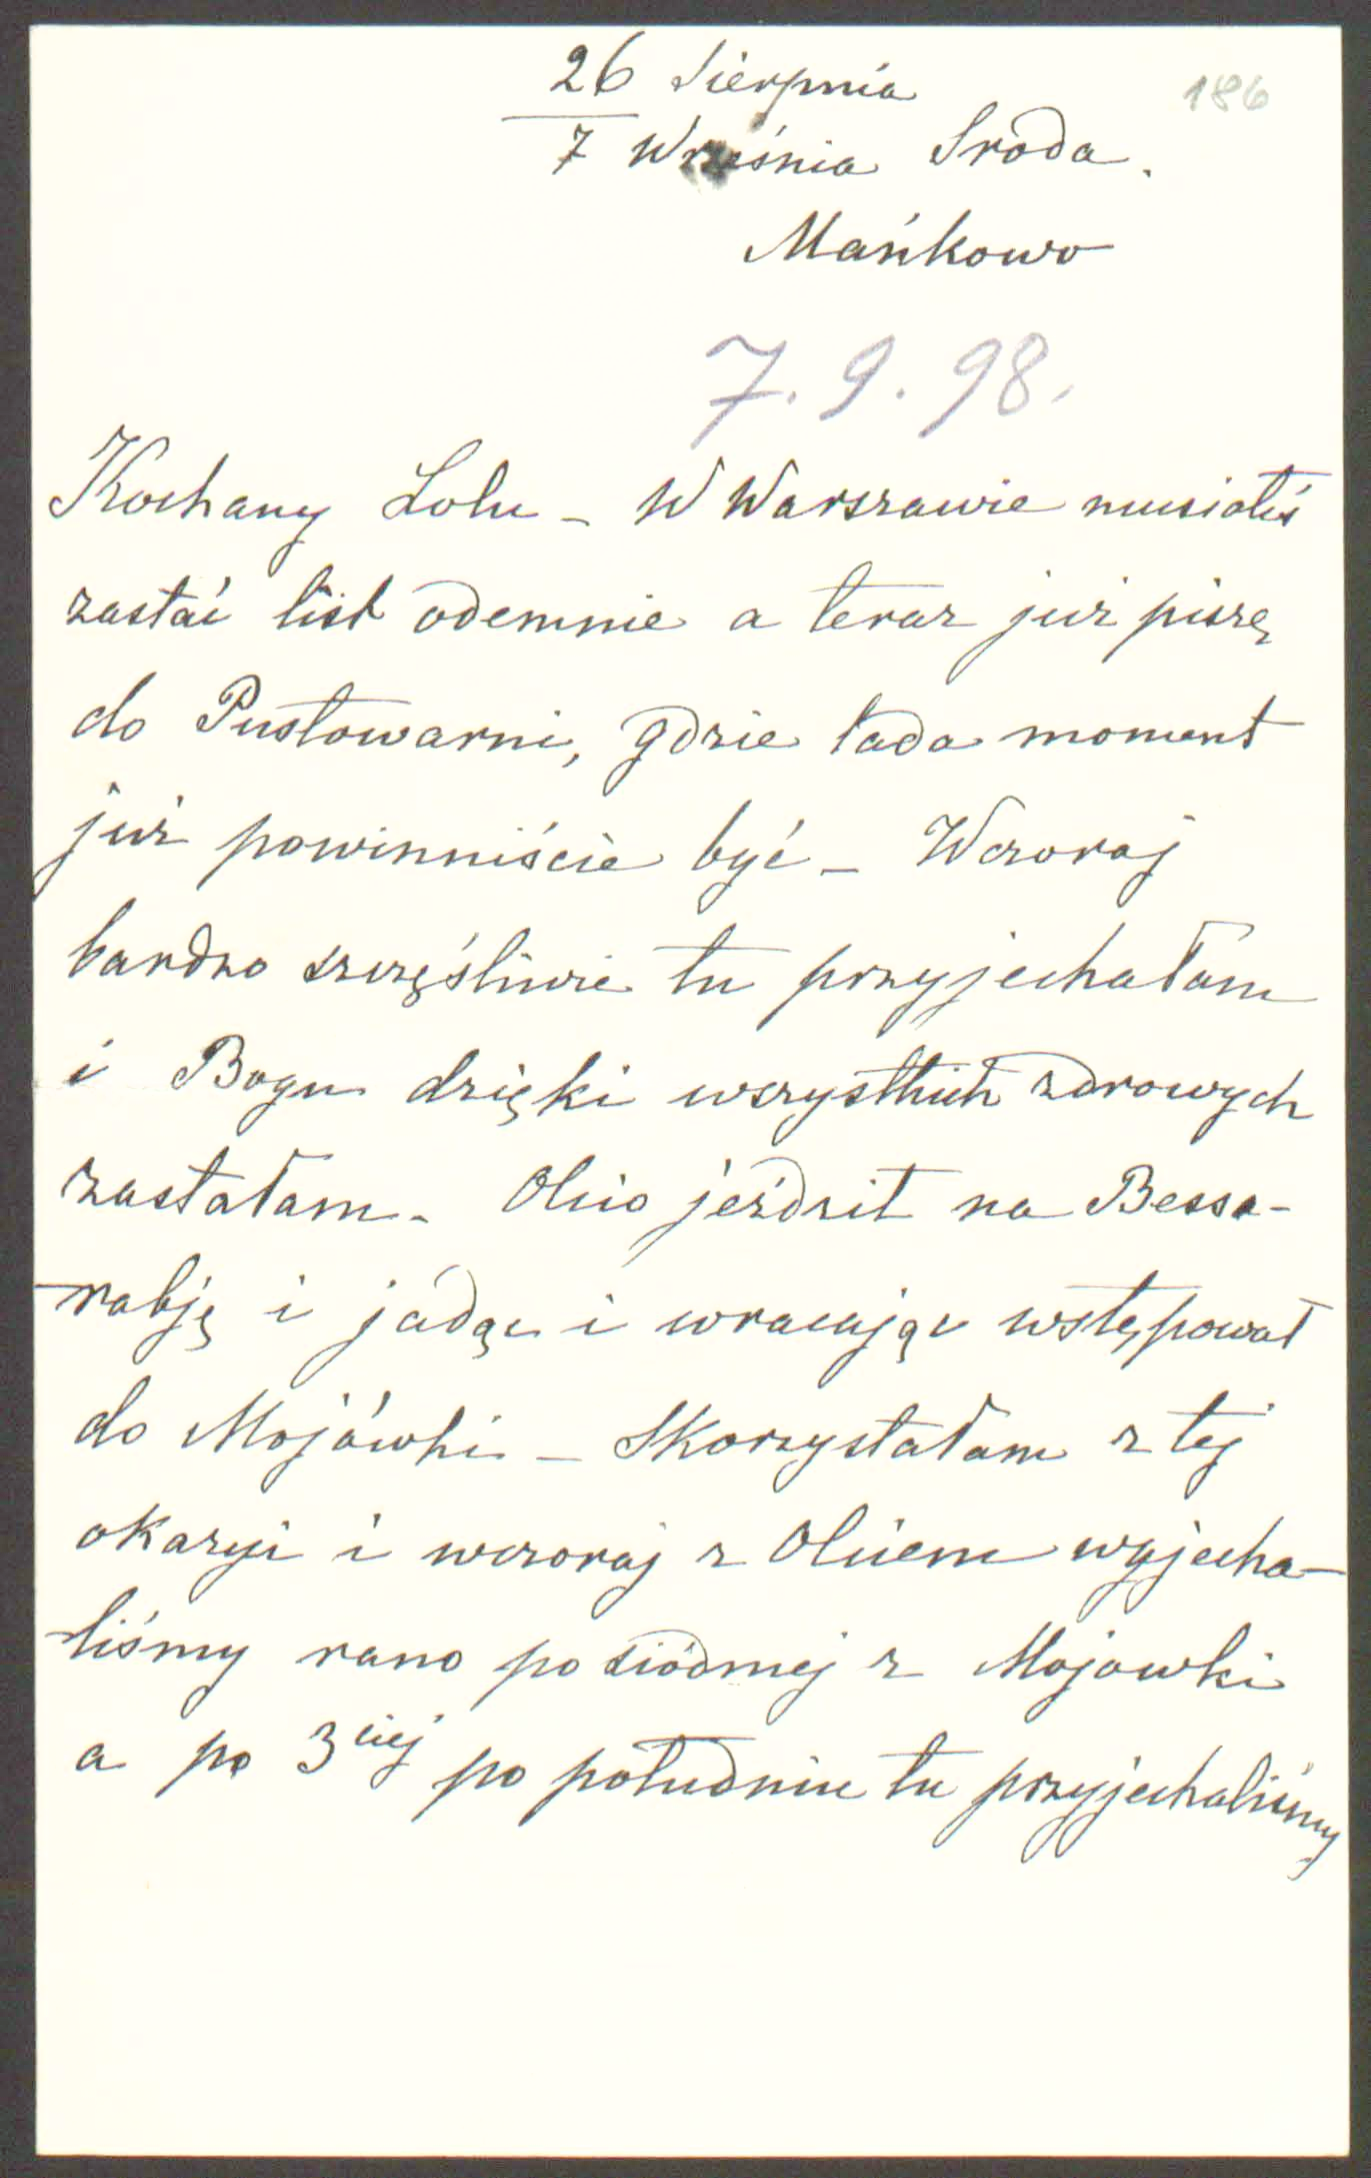 26 Sierpnia
186
7 Września Środa.
Mańkowo
7. 9. 98.
Kochany Lolu - W Warszawie musiałeś
zastać list odemnie a teraz już piszę
do Pustowarni, gdzie lada moment
już powinniście być - Wczoraj
bardzo szczęśliwie tu przyjechałam
i Bogu dzięki wszystkich zdrowych
zastałam. Olcio jeździł na Bessa-
-rabję i jadąc i wracając wstępował
do Mojówki - Skorzystałam z tej
okazyi i wczoraj z Olciem wyjecha-
-liśmy rano po siódmej z Mojowki
a po 3ciej po południu tu przyjechaliśmy